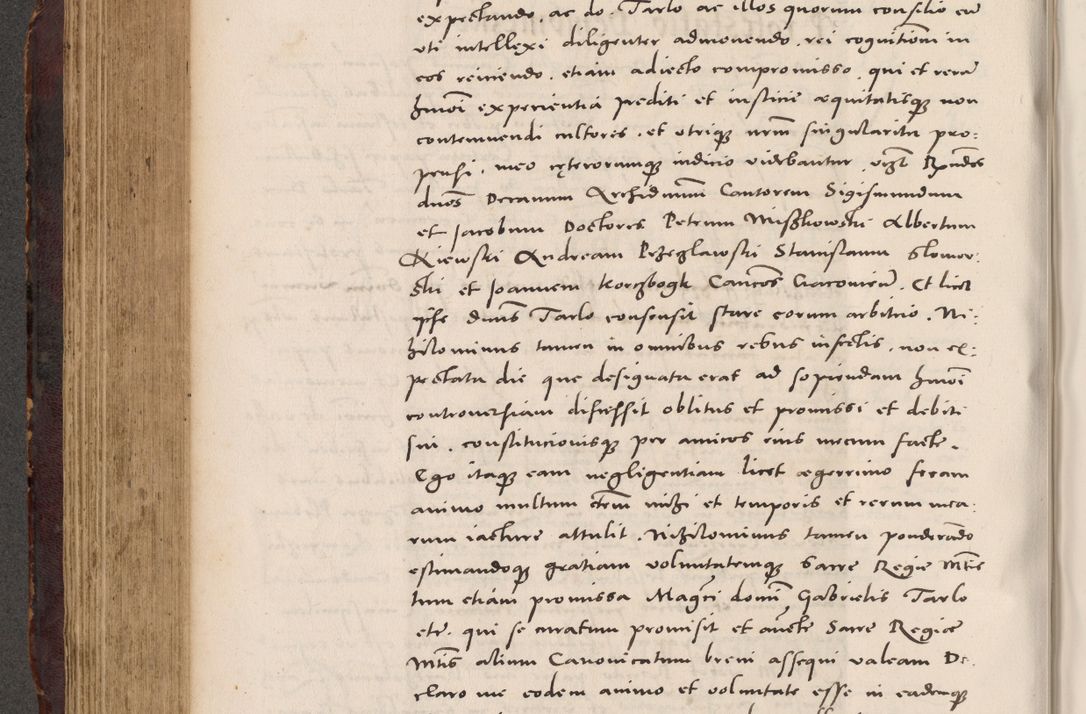 expectando, ac do. Tarlo ac illos quorum consilio eū
vti intellexi diligenter admonendo, rei cognitionī in
eos reiiciendo, etiam adiecto compromisso, qui et rerū
hmōi experientia prediti et iusticie aequitatisqꝫ non
contemnendi cultores, et vtriqꝫ nrm̄ singulariter pro:
pensi, meo cęterorumqꝫ iudicio videbantur, vizt Rp̄ndos
duōs Decanum Archidnum̄ Cantorem Sigismundum
et Jacobum Doctores Petrum Miszkowski Albertum
Kiewski Andream Przeglawski Stanislaum Slomow:
ski et Joannem Korczbogk Canēos Cracouien̄. Et licet
ipse dnūs Tarlo consensit stare eorum arbitrio. Ni:
hilominus tamen in omnibus rebus infectis, non ex:
pectata die que designata erat ad sopiendam hmōi
controuersiam discessit oblitus et promissi et debiti
sui, constitucionisqꝫ per amicos eius mecum facte.
Ego itaqꝫ eam negligentiam licet aegerrimo feram
animo multum eten̄ mihi et temporis et rerum mea:
rum iacture attulit. Nihilominus tamen ponderādo
estimandoqꝫ gratiam voluntatemqꝫ Sacre Regie Mtis
tum etiam promissa Magci domī Gabrielis Tarlo
etc. qui se curaturum promisit et aucte Sacre Regiae
Mtis alium Canonicatum breui assequi valeam De:
claro me eodem animo et voluntate esse in eademqꝫ